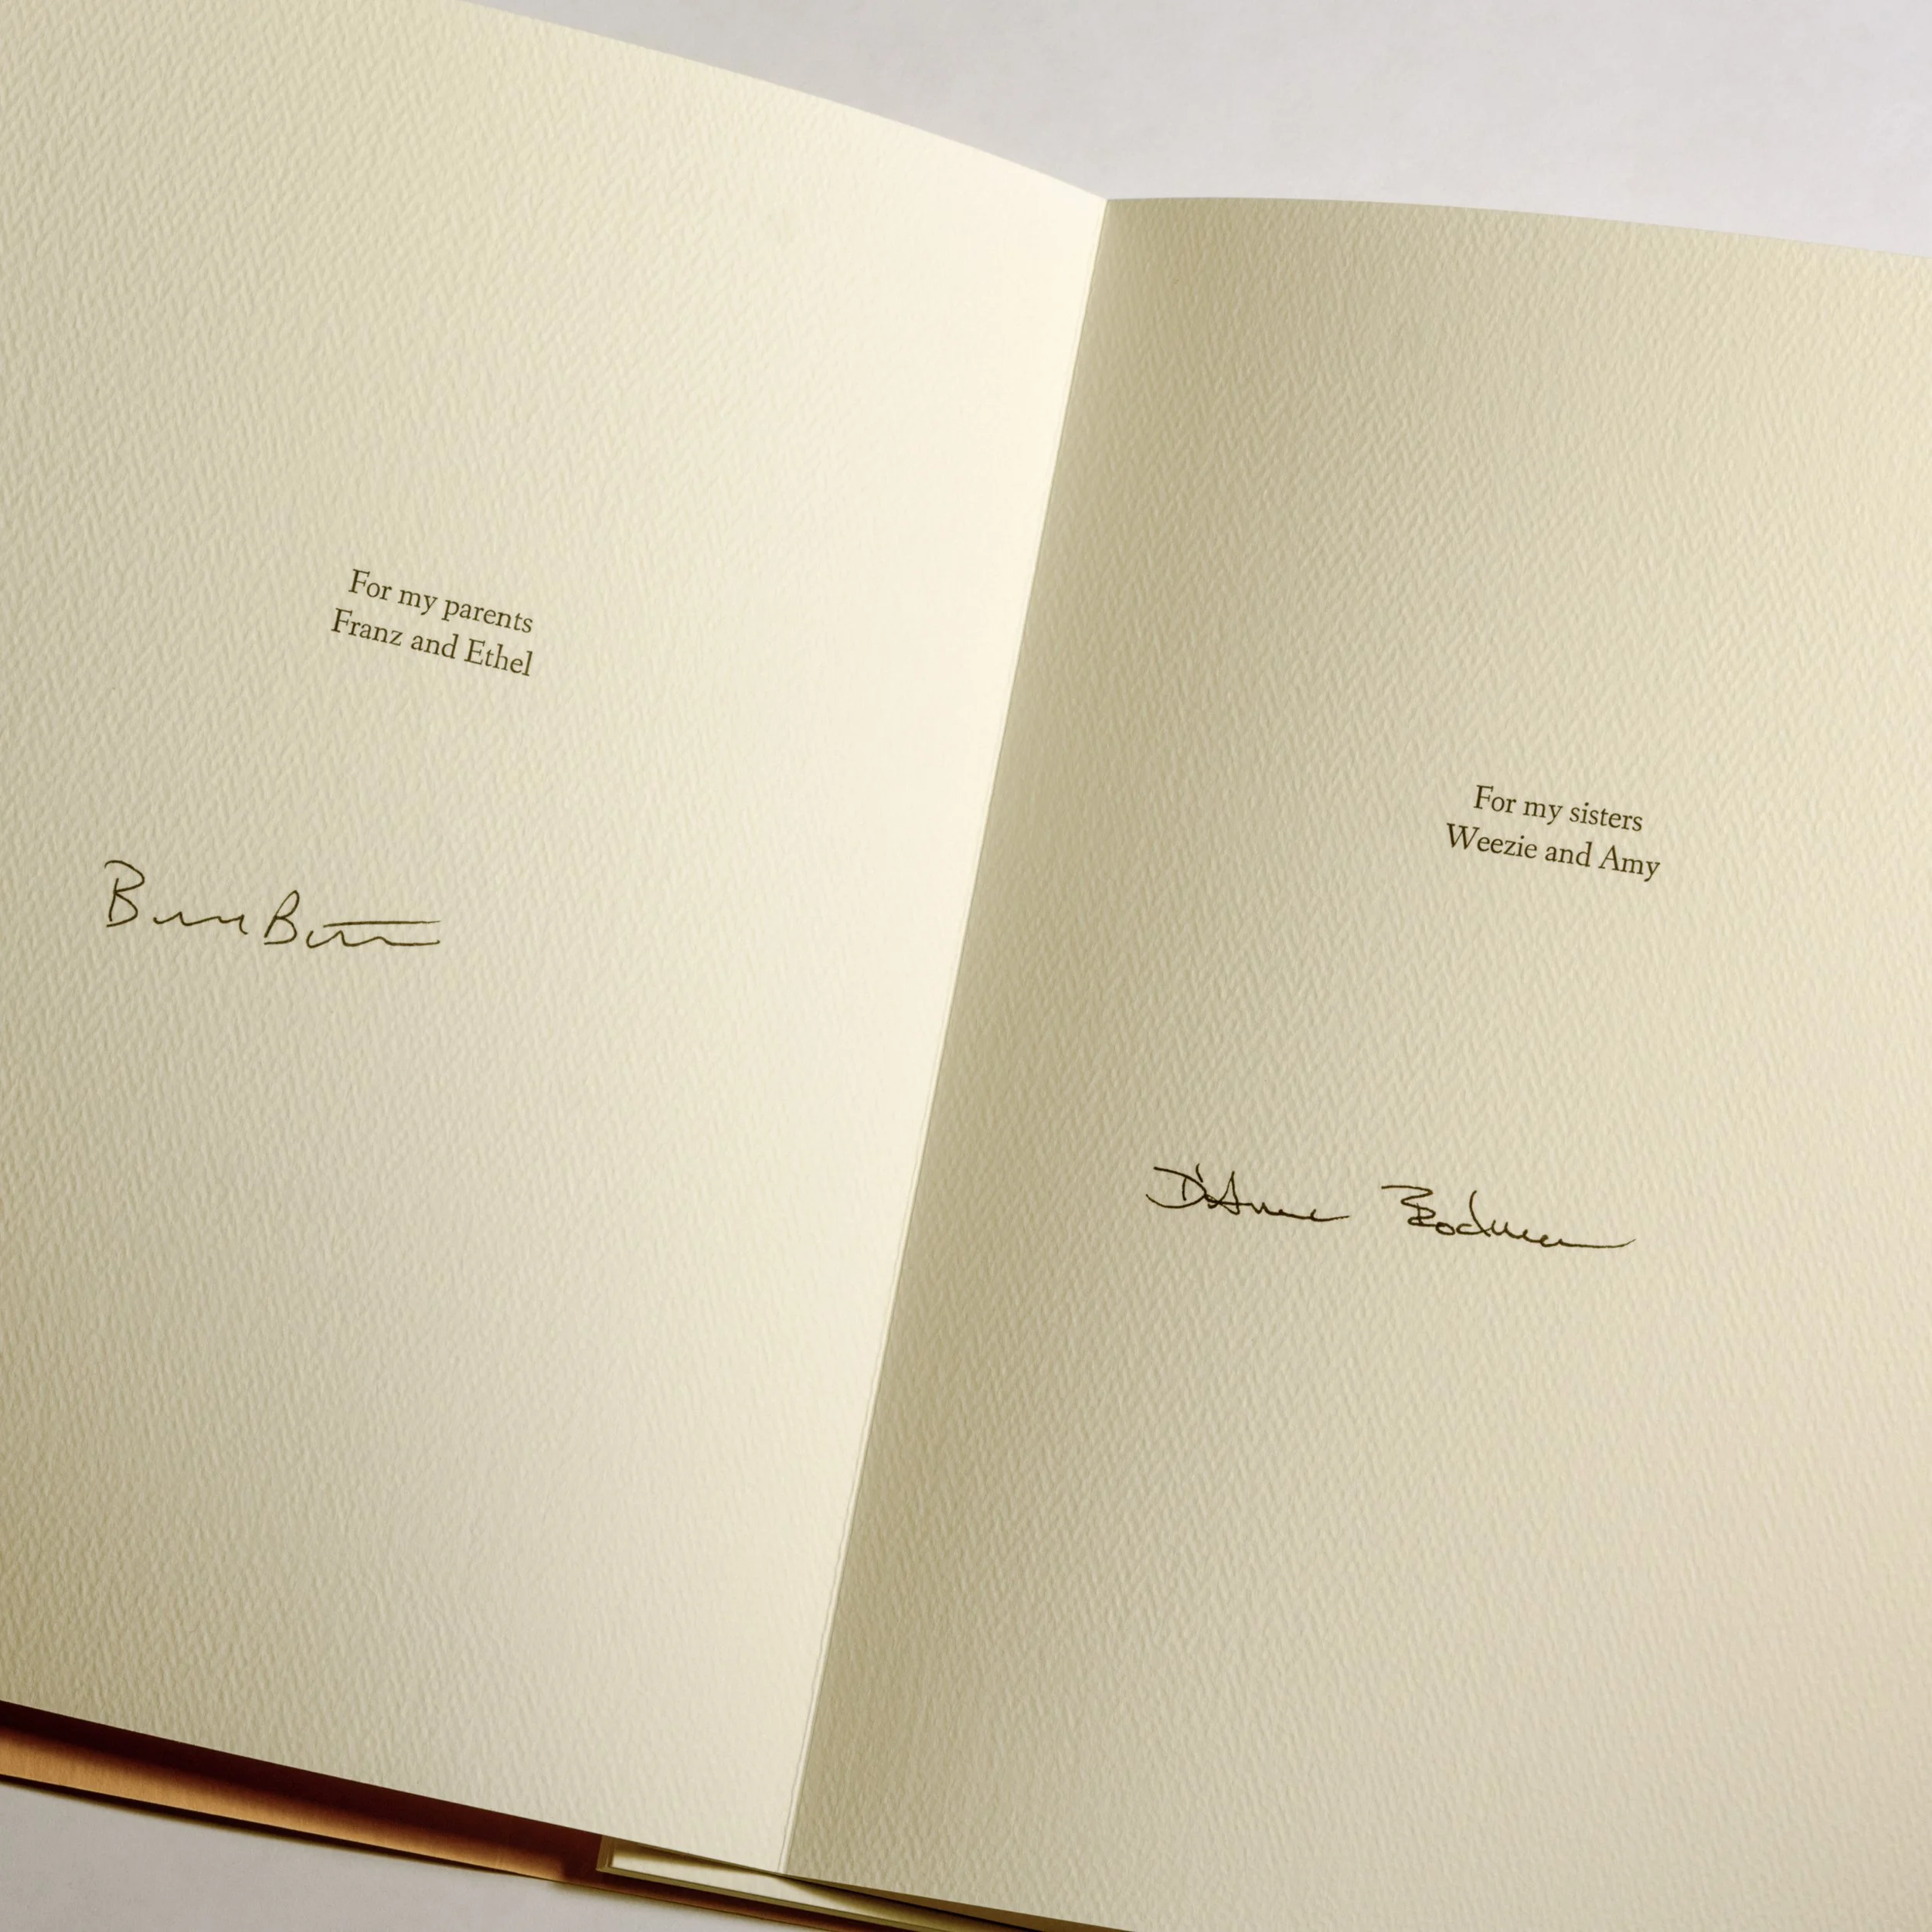 For my parents
Franz and Ethel
For my sisters
Weezie and Amy
D'Anne Bodman